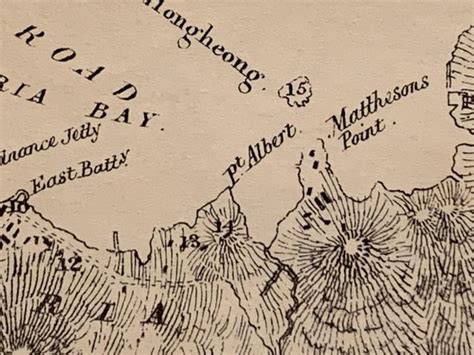 ROAD
RIA BAY.
Hongheong.
15
Matthesons
Point.
dnance Jetty
East Batty
Pt Albert.
10
12
13
14
R I A